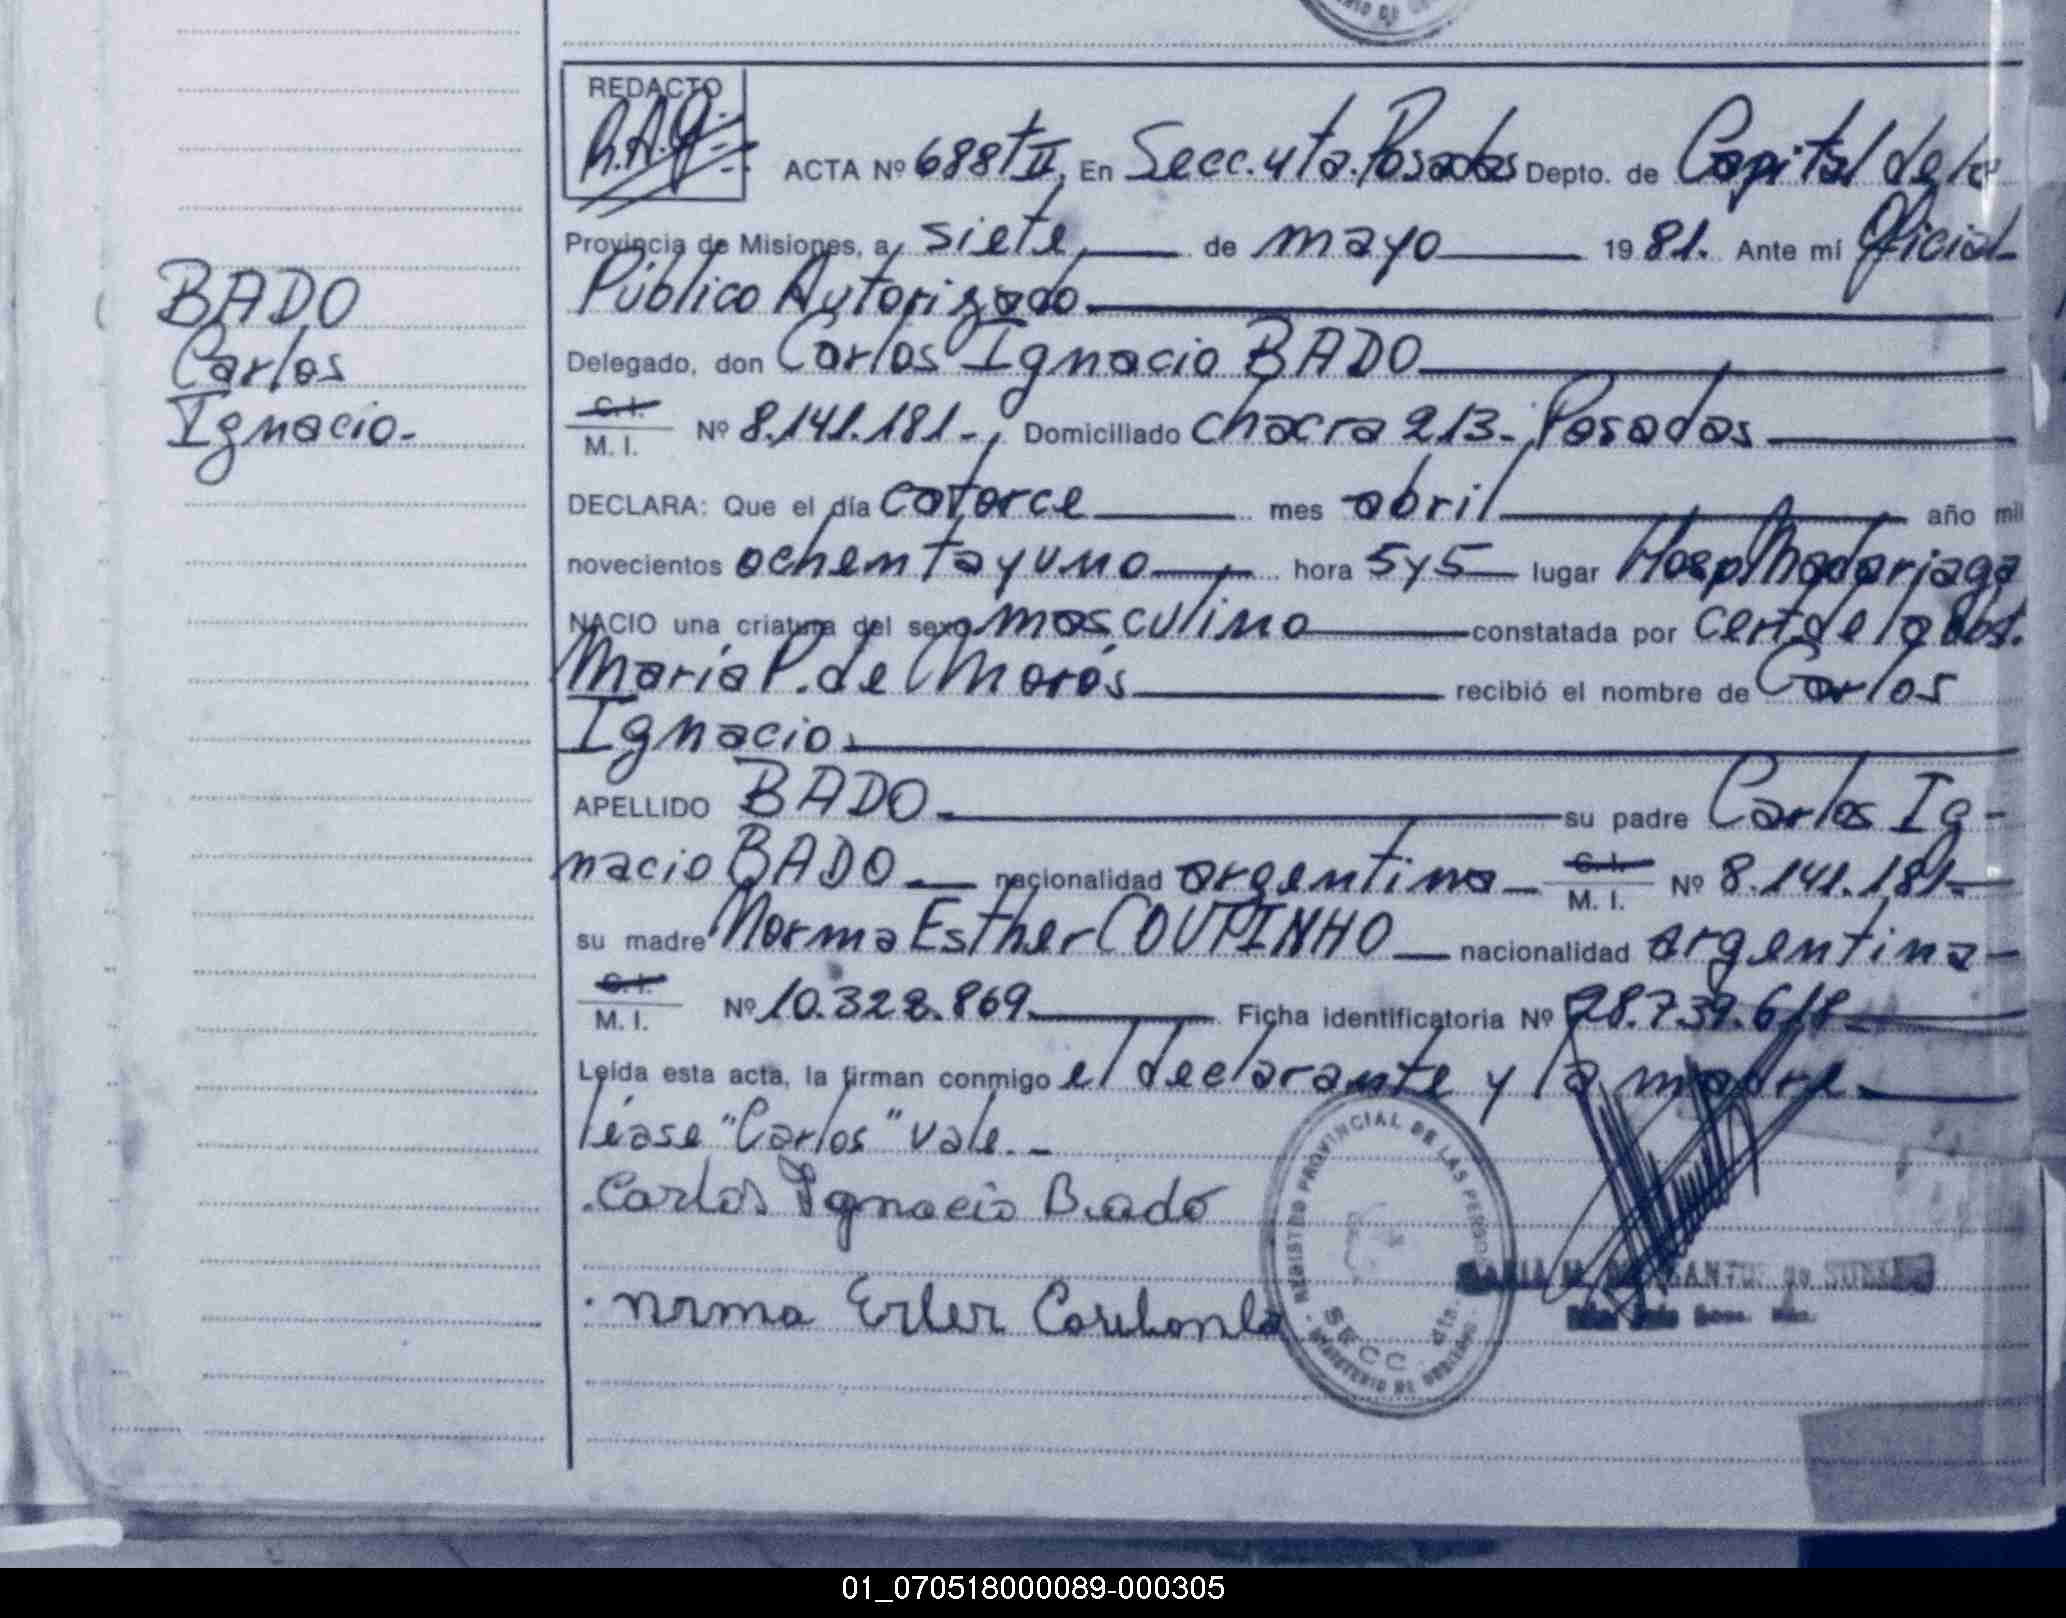 REDACTO
R.A.G.
ACTA Nº 688 tº II, En Secc. 4ta. Posadas Depto. de Capital de la
Provincia de Misiones, a siete de mayo 1981. Ante mí Oficial
Público Autorizado
Delegado, don Carlos Ignacio BADO
BADO
Carlos
Ignacio.-
C. I.
M. I. Nº 8.141.181-, Domiciliado chacra 213- Posadas
DECLARA: Que el día catorce mes abril año mil
novecientos ochenta y uno hora 5 y 5 lugar Hosp. Madariaga
NACIO una criatura del sexo masculino constatada por cert. de la Obst.
María P. de Morós recibió el nombre de Carlos
Ignacio.
APELLIDO BADO su padre Carlos Ig-
nacio BADO nacionalidad argentina C. I. M. I. Nº 8.141.181-
su madre Norma Esther COUTINHO nacionalidad argentina-
C. I.
M. I. Nº 10.328.869. Ficha identificatoria Nº 28.739.618
Leída esta acta, la firman conmigo el declarante y la madre.
léase "Carlos" vale.-
Carlos Ignacio Bado
Norma
REGISTRO PROVINCIAL DE LAS PERSONAS
SECC 4ta.
MINISTERIO DE GOBIERNO
01_070518000089-000305